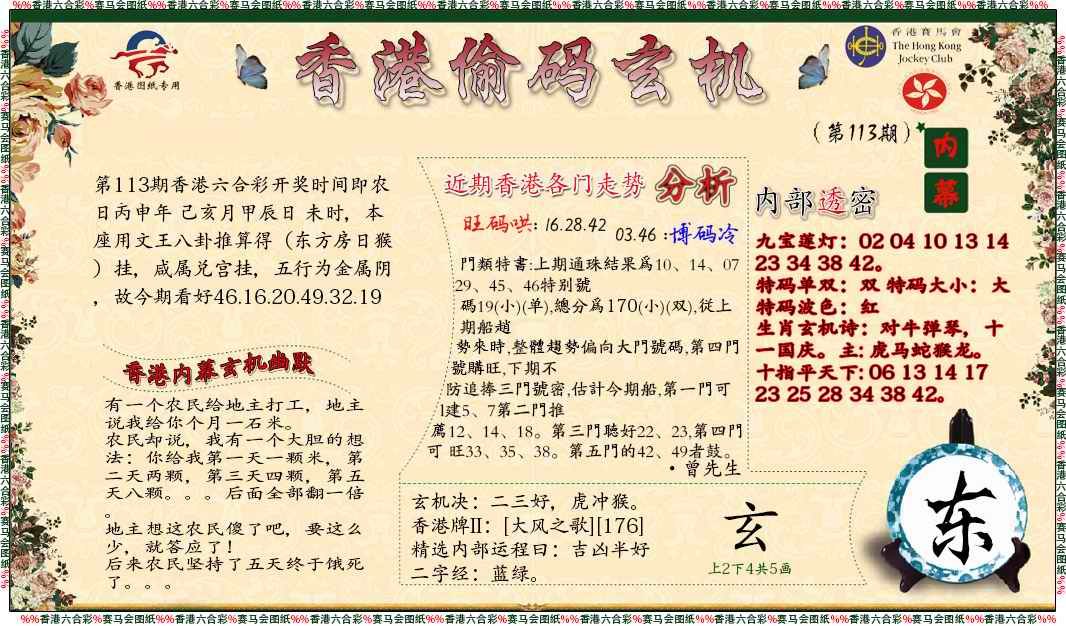 %%香港六合彩%赛马会图纸%%香港六合彩%赛马会图纸%%香港六合彩%赛马会图纸%%香港六合彩%赛马会图纸%%香港六合彩%赛马会图纸%%香港六合彩%赛马会图纸%%香港六合彩%赛马会图纸%%香港六合彩%%
香港图纸专用
香港偷码玄机
香港賽馬會
The Hong Kong
Jockey Club
(第113期)
内
幕
第113期香港六合彩开奖时间即农
日丙申年 己亥月甲辰日 未时，本
座用文王八卦推算得（东方房日猴
）挂，咸属兑宫挂，五行为金属阴
，故今期看好46.16.20.49.32.19
香港内幕玄机幽默
有一个农民给地主打工，地主
说我给你个月一石米。
农民却说，我有一个大胆的想
法：你给我第一天一颗米，第
二天两颗，第三天四颗，第五
天八颗。。。后面全部翻一倍
。
地主想这农民傻了吧，要这么
少，就答应了！
后来农民坚持了五天终于饿死
了。。。
近期香港各门走势 分析
旺码哄: 16.28.42
03.46 :博码冷
門類特書:上期通珠結果爲10、14、07
29、45、46特别號
碼19(小)(单),總分爲170(小)(双),従上
期船趙
勢來時,整體趨勢偏向大門號碼,第四門
號購旺,下期不
防追捧三門號密,估計今期船,第一門可
1建5、7第二門推
薦12、14、18。第三門聽好22、23,第四門
可 旺33、35、38。第五門的42、49者鼓。
·曾先生
玄机决：二三好，虎冲猴。
香港牌II：[大风之歌][176]
精选内部运程曰：吉凶半好
二字经：蓝绿。
玄
上2下4共5画
内部透密
九宝莲灯：02 04 10 13 14
23 34 38 42。
特码单双：双 特码大小：大
特码波色：红
生肖玄机诗：对牛弹琴，十
一国庆。主: 虎马蛇猴龙。
十指平天下: 06 13 14 17
23 25 28 34 38 42。
东
%%香港六合彩%赛马会图纸%%香港六合彩%赛马会图纸%%香港六合彩%赛马会图纸%%香港六合彩%赛马会图纸%%香港六合彩%赛马会图纸%%香港六合彩%赛马会图纸%%香港六合彩%赛马会图纸%%香港六合彩%%